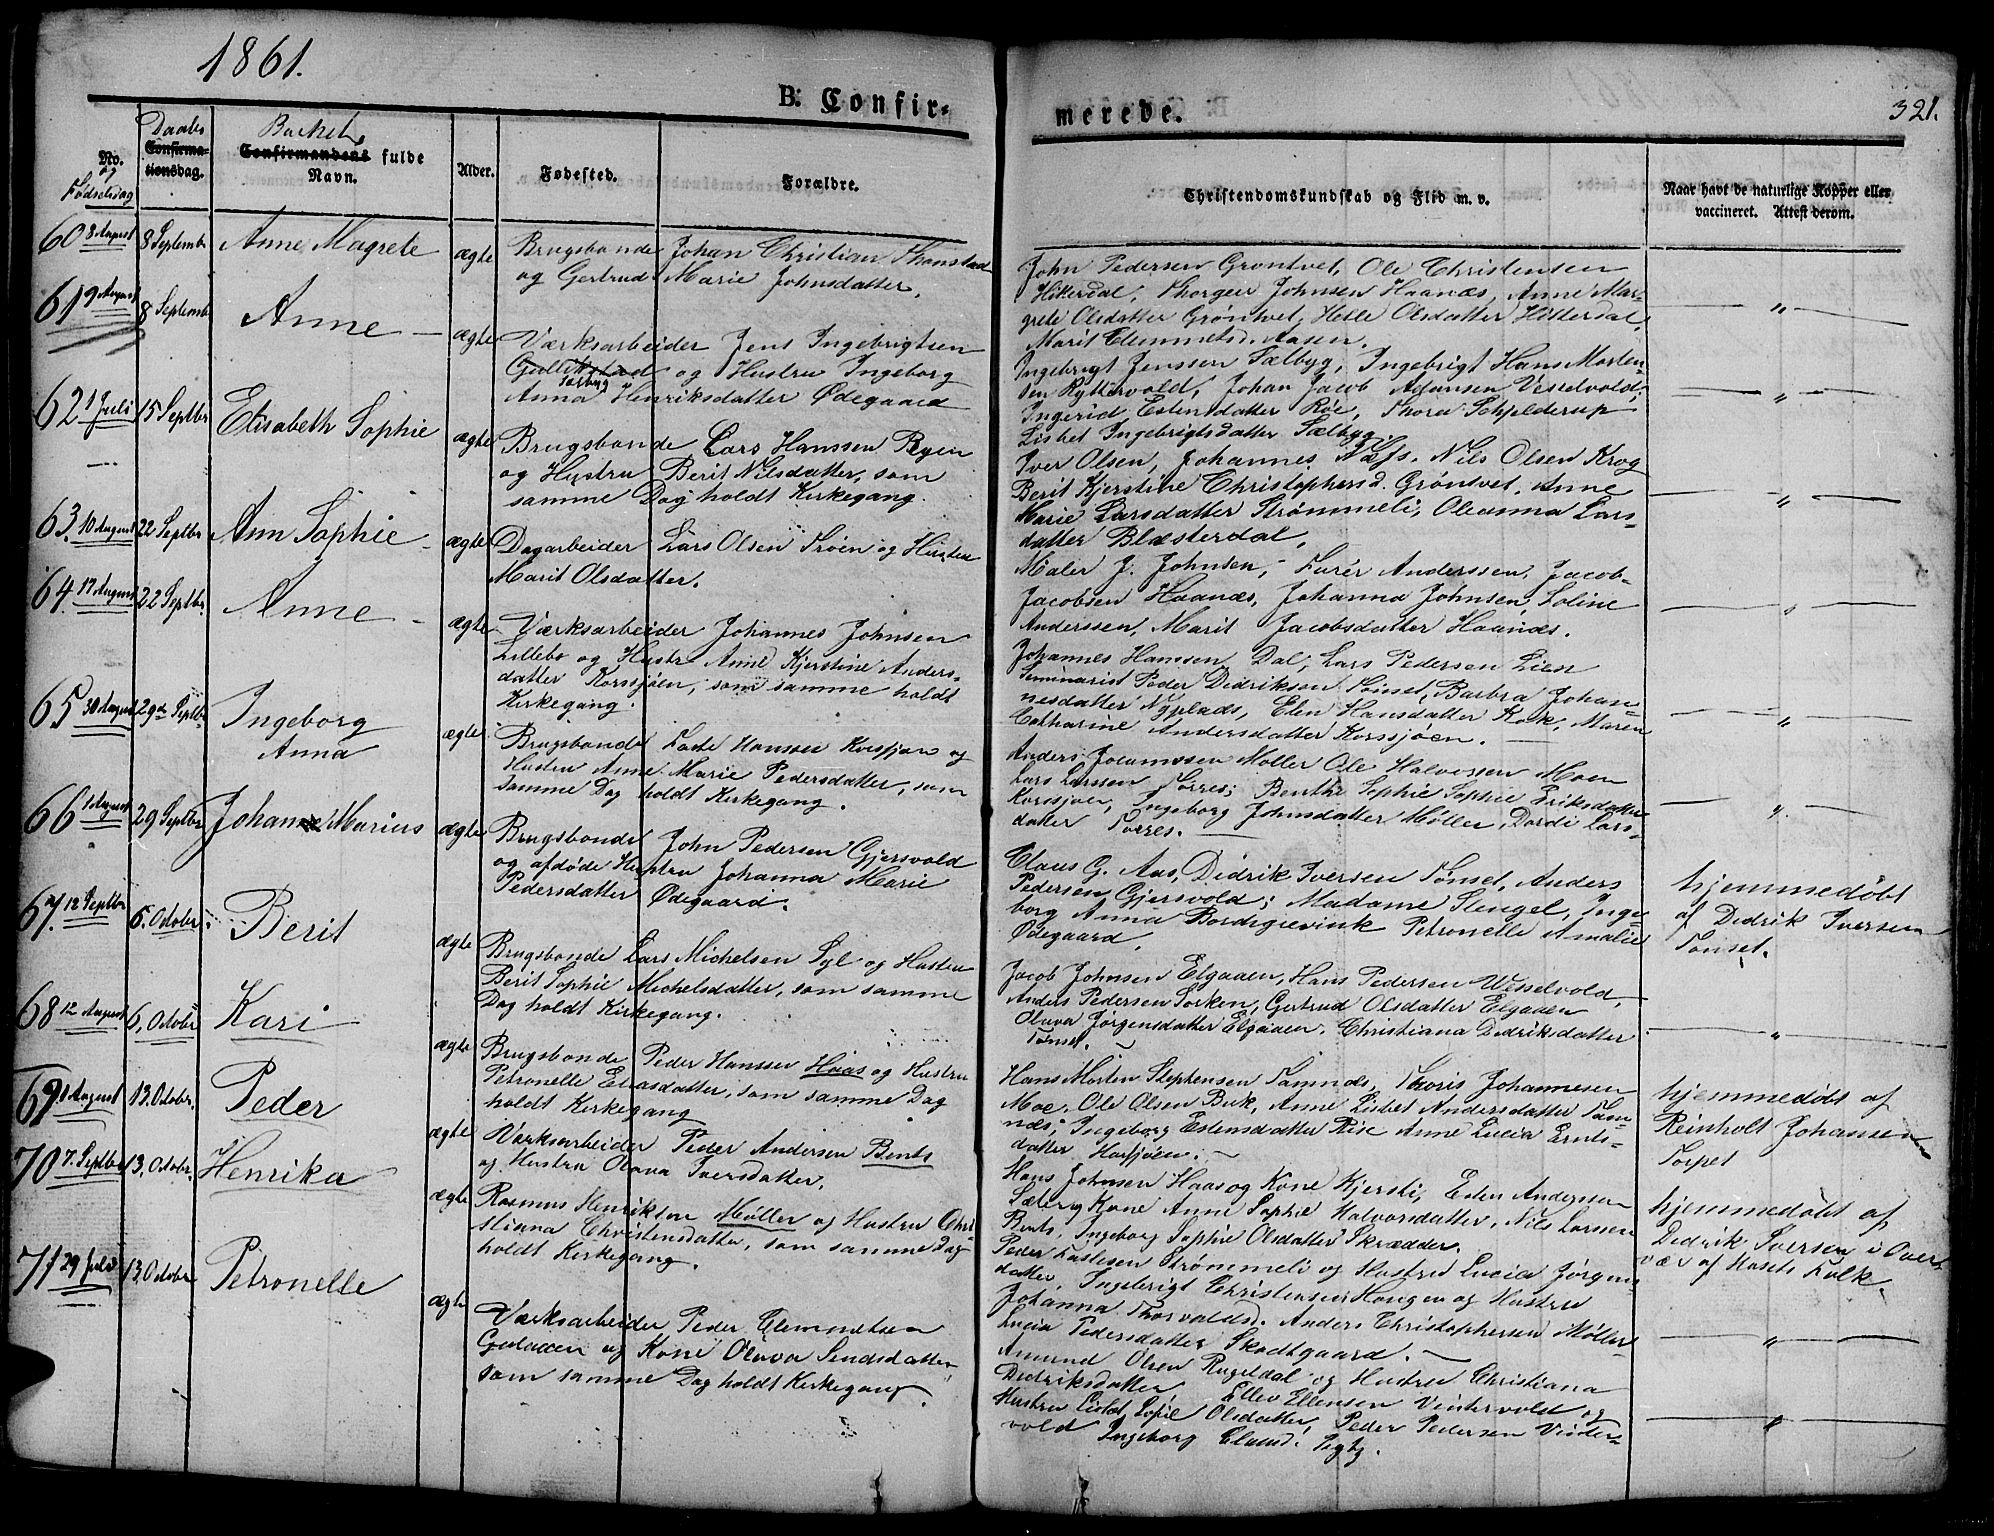 1861.
B: Confir-
merede.
321.
No. og Fødselsdag
Daabs Confirmationsdag.
Barnets Confirmandens fulde Navn.
Alder.
Fødested.
Forældre.
Christendomskundskab og Flid m. v.
Naar havt de naturlige Kopper eller vaccineret. Attest derom.
60 8 August
8 Septembr
Anne Magrete
ægte
Brugsbonde Johan Christian
og Gertrud Marie Johnsdatter.
John Pedersen Grøntvet, Ole Christensen
Hitterdal, Thorger Johnsen Haanæs, Anne Mar-
grete Olsdatter Grøntvet, Helle Olsdatter Hitterdal,
Marit Clemmetsd. Aasen.
"
61 9 August
8 Septembr
Anne
ægte
Værksarbeider Jens Ingebrigtsen
Gullikstad Sælbyg og Hustru Ingeborg
Anna Henriksdatter Ødegaard
Ingebrigt Jenssen Sælbyg, Ingebrigt Hans Morten-
sen Ryttervold, Johan Jacob Vesselvold;
Ingerid Estensdatter Røe, Thora Schjelderup
Lisbet Ingebrigtsdatter Sælbyg.
"
62 1 Juli
15 Septbr
Elisabeth Sophie
ægte
Brugsbonde Lars Hanssen Ryen
og Hustru Berit Nilsdatter, som
samme Dag holdt Kirkegang.
Iver Olsen, Johannes Næss. Nils Olsen Krog
Berit Kjerstine Christophersd. Grøntvet, Anne
Marie Larsdatter Strømmeli, Oleanna Lars-
datter Blæsterdal.
"
63. 10 August
22 Septbr
Ann Sophie
ægte
Dagarbeider Lars Olsen Troen og Hustru
Marit Olsdatter.
Maler J. Johnsen, Anderssen, Jacob
Jacobsen Haanæs, Johanna Johnsen, Soline
Anderssen, Marit Jacobsdatter Haanæs.
"
64. 17 August
22 Septbr.
Anne
ægte
Værksarbeider Johannes Johnsen
Lillebo og Hustr Anne Kjerstine Anders-
datter Korssjøen, som samme holdt
Kirkegang.
Johannes Hansen Dal, Lars Pedersen Lien
Seminarist Peder Didriksen Tønset, Barbra Johan-
nesdatter Nyplads, Elen Hansdatter Kokk, Maren
Catharine Andersdatter Korssjøen.
"
65 30 August
29de Septbr
Ingeborg
Anna
ægte
Brugsbonde Hanssen Korssjøen og
Hustru Anne Marie Pedersdatter, som
samme Dag holdt Kirkegang.
Anders Møller Ole Halvorsen Moen
Lars Larssen Torres; Benthe Sophie Sophie Eriksdatter
Korssjøen, Ingeborg Johnsdatter Møller, Dordi Lars-
datter Torres.
"
66 1 August
29 Septbr
Johan Marius
ægte
Brugsbonde John Pedersen Gjersvold
og afdøde Hustru Johanna Marie
Pedersdatter Ødegaard.
Claus G. Aas, Didrik Iversen Tønset, Anders
Pedersen Gjersvold; Madame Stengel, Inge-
borg Anna Bordegrevink Petronelle Amalie
Ødegaard.
hjemmedøbt
af Didrik Iversen
Tønset.
67. 12 Septbr
6. October
Berit
ægte
Brugsbonde Lars Michelsen Syl og Hustru
Berit Sophie Michelsdatter, som samme
Dag holdt Kirkegang.
Jacob Johnsen Elgaaen, Hans Pedersen Wesselvold,
Anders Pedersen Sorken, Gertrud Olsdatter Elgaaen
Olava Jørgensdatter Elgaaen, Christiana Didriksdatter
Tønset.
"
68 12 August
6, Octobr
Kari
ægte
Brugsbonde Peder Hanssen Haas og Hustru
Petronelle Eliasdatter, som samme Dag
holdt Kirkegang
Hans Morten Stephensen Tamnæs, Thoris Johannesen
Moe, Ole Olsen Buk, Anne Lisbet Andersdatter Tam-
næs; Ingeborg Estensdatter Rise Anne Lucia Ernts-
datter Harsjøen.
hjemmedøbt af
Reinholt Johansen
Torpet
69 1 August
13. October.
Peder
ægte
Værksarbeider Peder Andersen Bents
og Hustru Olava Iversdatter.
Hans Johnsen Haas og Kone Kjersti, Esten Andersen
Sæter og Kone Anne Sophie Halvorsdatter, Nils Larsen
Bents, Ingeborg Sophie Olsdatter Skrædder.
hjemmedøbt af
Didrik Iversen i Over-
vær af Husets Folk.
70 7. Septbr
13. October
Henrika
ægte
Rasmus Henriksen Møller og Hustru Chri-
stianna Christensdatter, som samme Dag
holdt Kirkegang.
Peder Strømmeli og Hustru Lucia Jørgens-
datter Ingebrigt Christensen Haugen og Hustru
Johanna Thorvaldsd. Anders Christophersen Møller
Lucia Pedersdatter Skodtgaard.
"
71 29 Juli
13, October
Petronelle
ægte
Værksarbeider Peder Clemmetsen
og Kone Olava
som samme Dag holdt Kirkegang.
Amund Olsen Rugeldal og Hustru Christiana
Didriksdatter Ellev Ellensen Vintervold og
Hustru Lisbet Sofie Olsdatter, Peder Pedersen Vinter-
vold Ingeborg
"